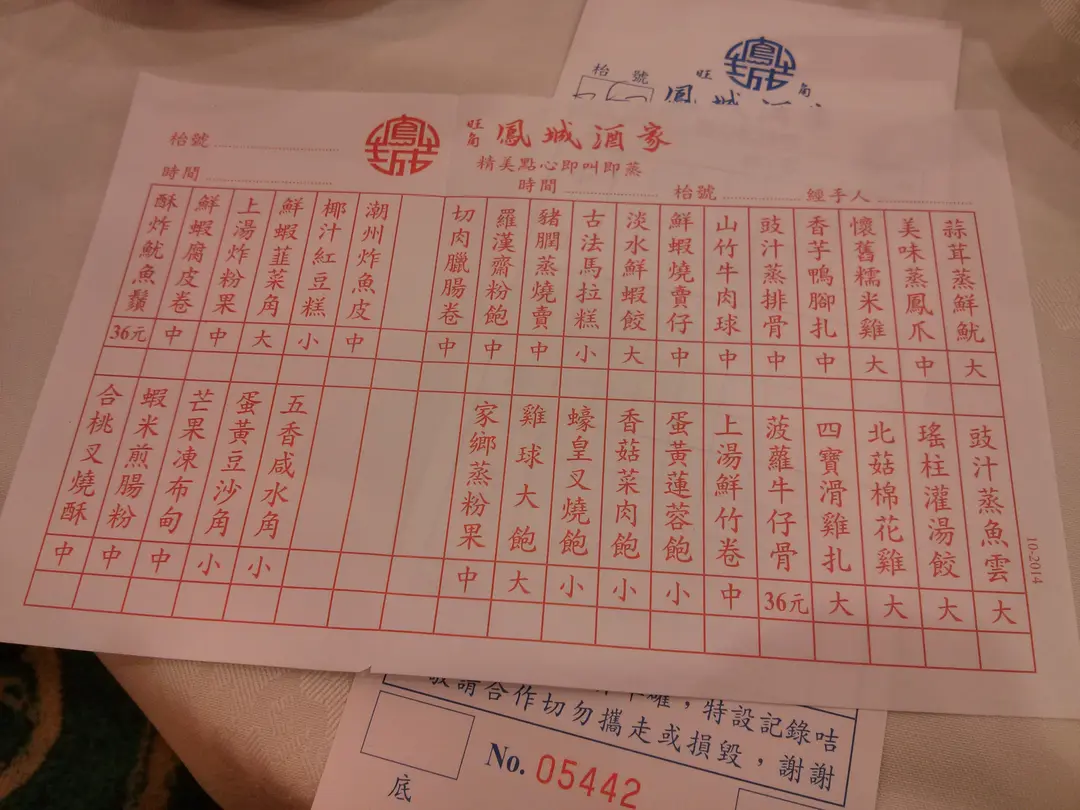 枱號
旺角
鳳城
枱號
時間
鳳城
旺角 鳳城酒家
精美點心即叫即蒸
時間 枱號 經手人
蒜茸蒸鮮魷 大
美味蒸鳳爪 中
懷舊糯米雞 大
香芋鴨腳扎 中
豉汁蒸排骨 中
山竹牛肉球 中
鮮蝦燒賣仔 中
淡水鮮蝦餃 大
古法馬拉糕 小
豬膶蒸燒賣 中
羅漢齋粉飽 中
切肉臘腸卷 中
潮州炸魚皮 中
椰汁紅豆糕 小
鮮蝦韮菜角 大
上湯炸粉果 中
鮮蝦腐皮卷 中
酥炸魷魚鬚 36元
豉汁蒸魚雲 大
瑤柱灌湯餃 大
北菇棉花雞 大
四寶滑雞扎 大
菠蘿牛仔骨 36元
上湯鮮竹卷 中
蛋黃蓮蓉飽 小
香菇菜肉飽 小
蠔皇叉燒飽 小
雞球大飽 大
家鄉蒸粉果 中
五香咸水角 小
蛋黃豆沙角 小
芒果凍布甸 中
蝦米煎腸粉 中
合桃叉燒酥 中
10-2014
，特設記錄咭
敬請合作切勿攜走或損毀，謝謝
No. 05442
底